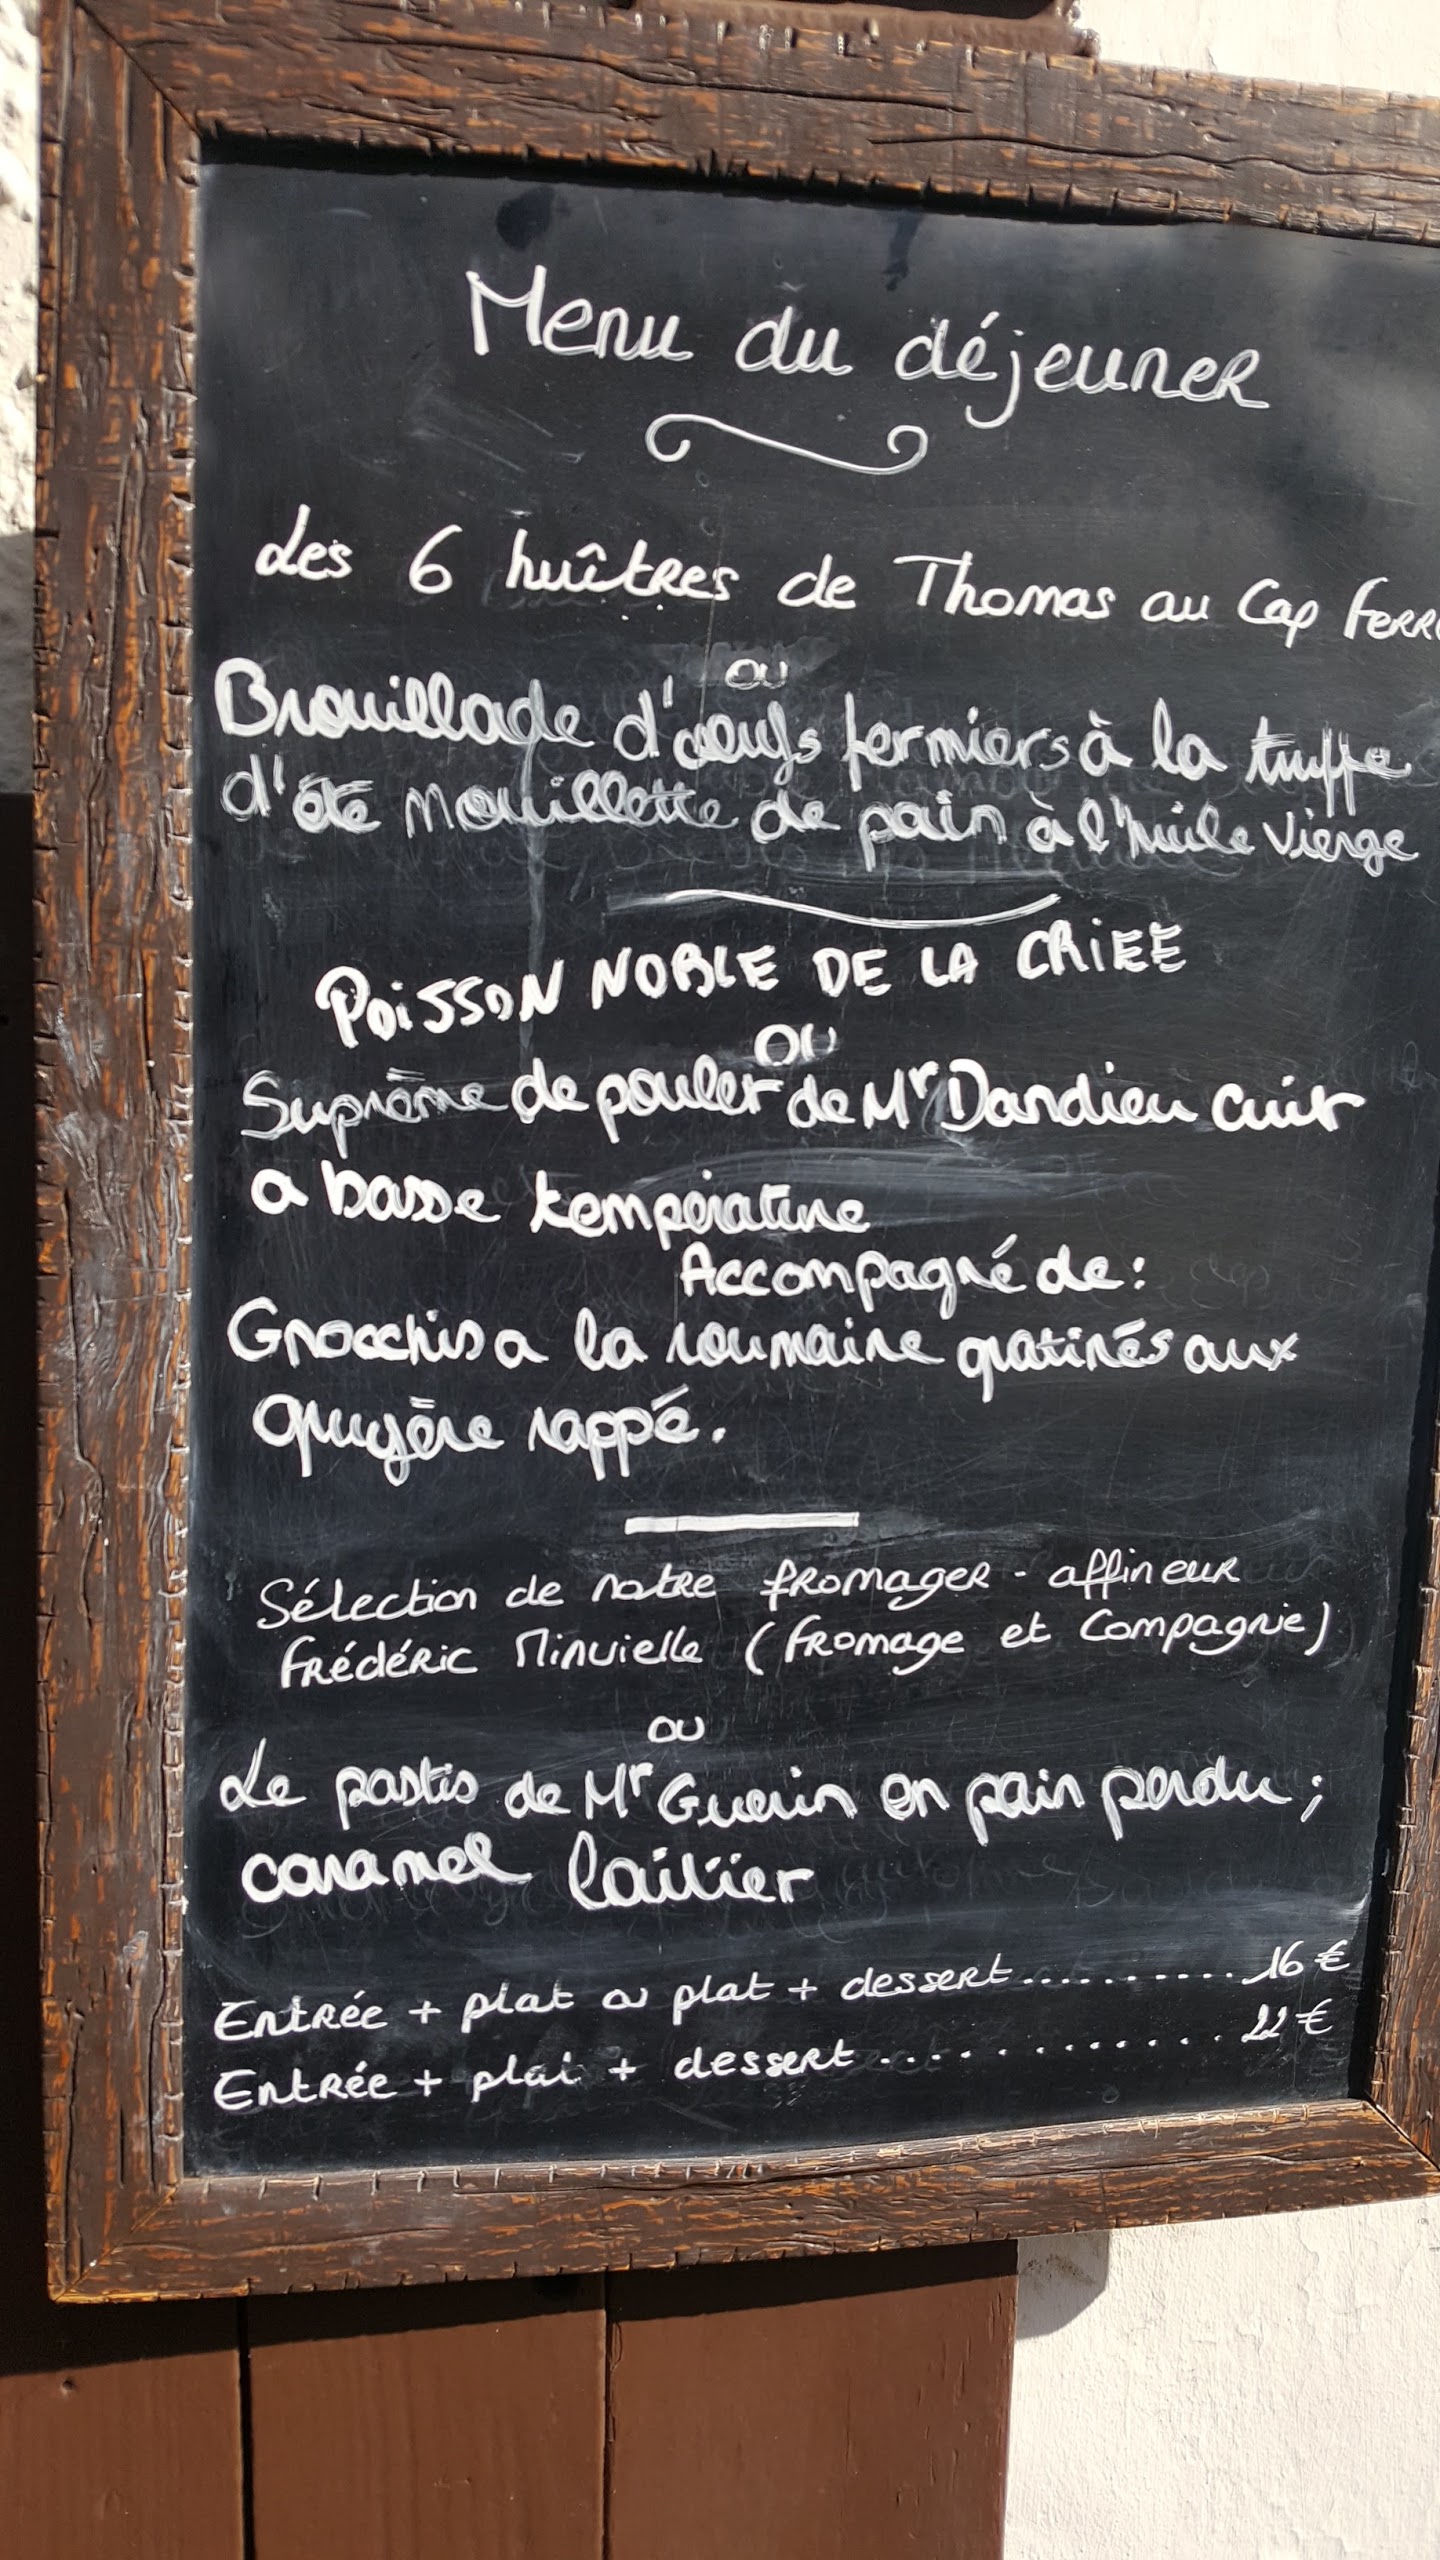 Menu du déjeuner
Les 6 huîtres de Thomas au Cap Ferr
ou
Brouillade d'œufs fermiers à la truffe
d'été mouillette de pain à l'huile vierge
POISSON NOBLE DE LA CRIEE
OU
Suprême de poulet de Mr Dandieu cuit
a basse température
Accompagné de :
Gnocchis a la roumaine gratinés aux
gruyère rappé.
Sélection de notre fromager - affineur
Frédéric Minvielle (Fromage et Compagnie)
ou
Le pastis de Mr Guerin en pain perdu ;
caramel laitier
Entrée + plat ou plat + dessert..........16 €
Entrée + plat + dessert............22 €